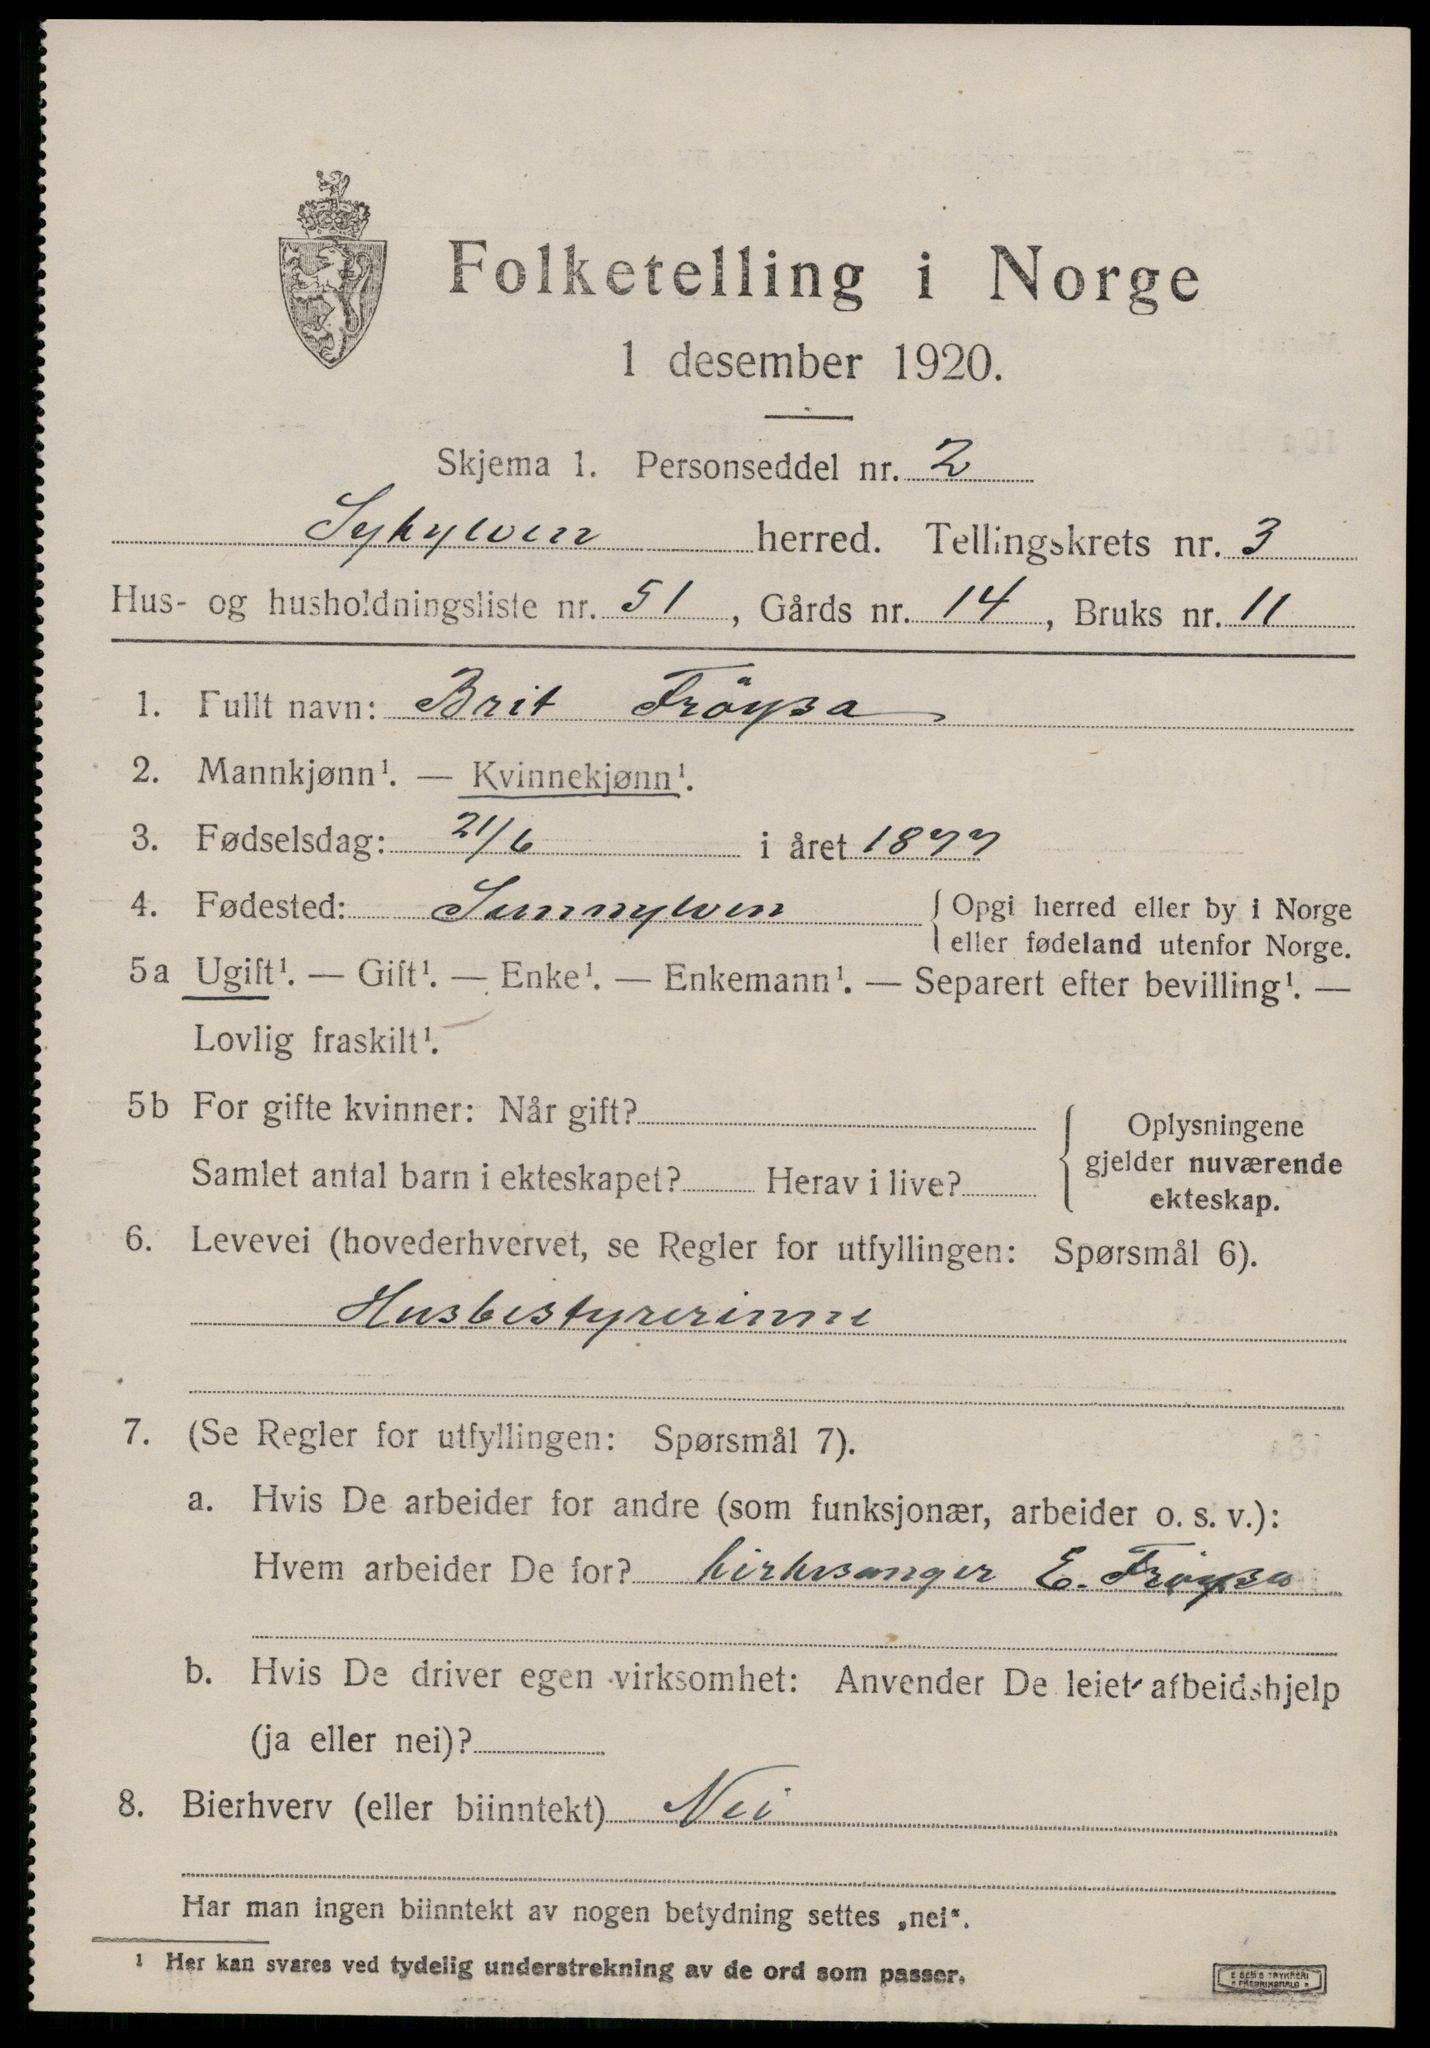 Folketelling i Norge
1 desember 1920.
Skjema 1. Personseddel nr. 2
Sykylven herred. Tellingskrets nr. 3
Hus- og husholdningsliste nr. 51, Gårds nr. 14, Bruks nr. 11
1. Fullt navn: Brit Fröysa
2. Mannkjønn¹. — Kvinnekjønn¹.
3. Fødselsdag: 21/6 i året 1877
4. Fødested: Sunnylven { Opgi herred eller by i Norge
eller fødeland utenfor Norge.
5a Ugift¹. — Gift¹. — Enke¹. — Enkemann¹. — Separert efter bevilling¹. —
Lovlig fraskilt¹.
5b For gifte kvinner: Når gift?
Samlet antal barn i ekteskapet? Herav i live?
Oplysningene
gjelder nuværende
ekteskap.
6. Levevei (hovederhvervet, se Regler for utfyllingen: Spørsmål 6).
Husbestyrerinne
7. (Se Regler for utfyllingen: Spørsmål 7).
a. Hvis De arbeider for andre (som funksjonær, arbeider o. s. v.):
Hvem arbeider De for? kirkesanger E. Fröysa
b. Hvis De driver egen virksomhet: Anvender De leiet arbeidshjelp
(ja eller nei)?
8. Bierhverv (eller biinntekt) Nei
Har man ingen biinntekt av nogen betydning settes „nei“.
¹ Her kan svares ved tydelig understrekning av de ord som passer.
E SEM'S TRYKKERI
FREDRIKSHALD